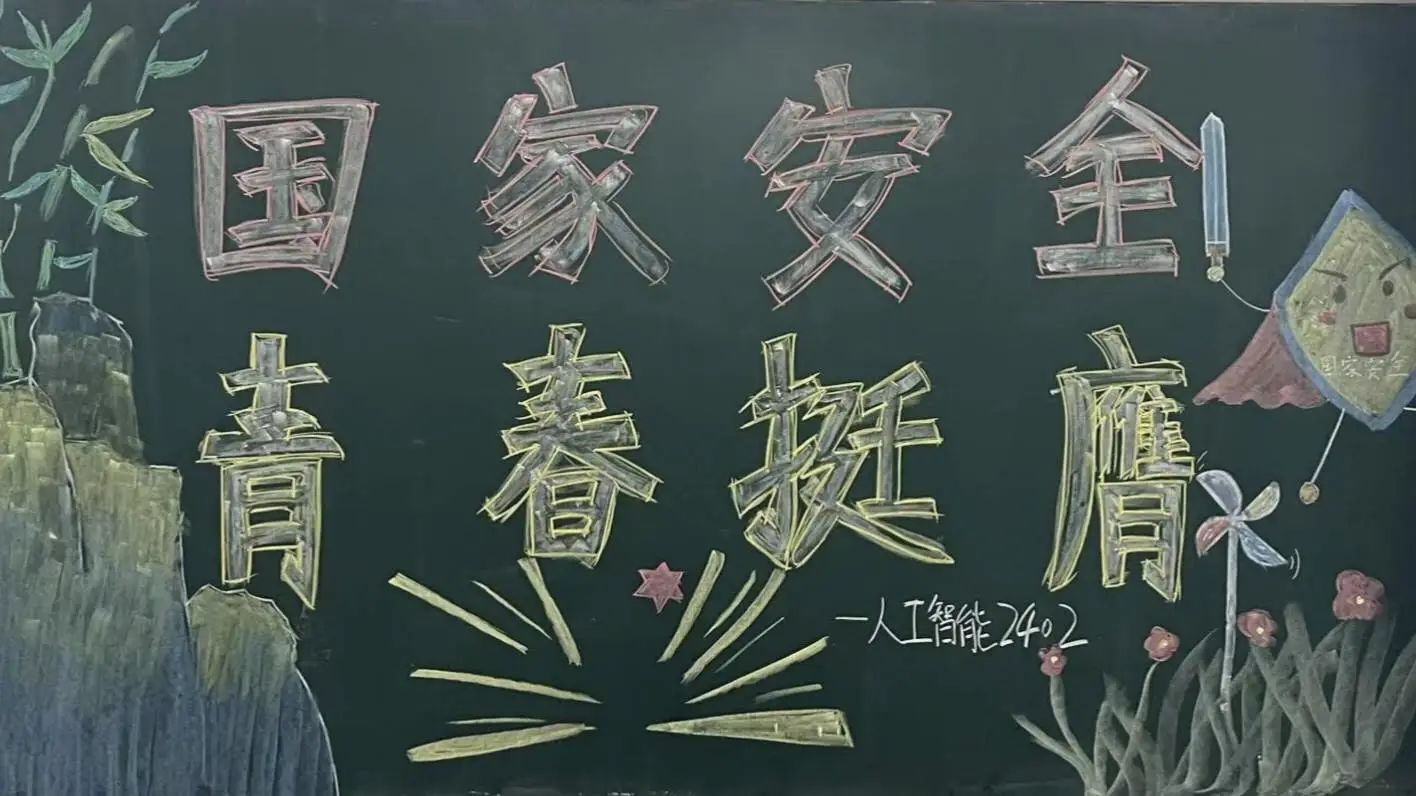 国家安全
国家安全
青春挺膺
一人工智能2402